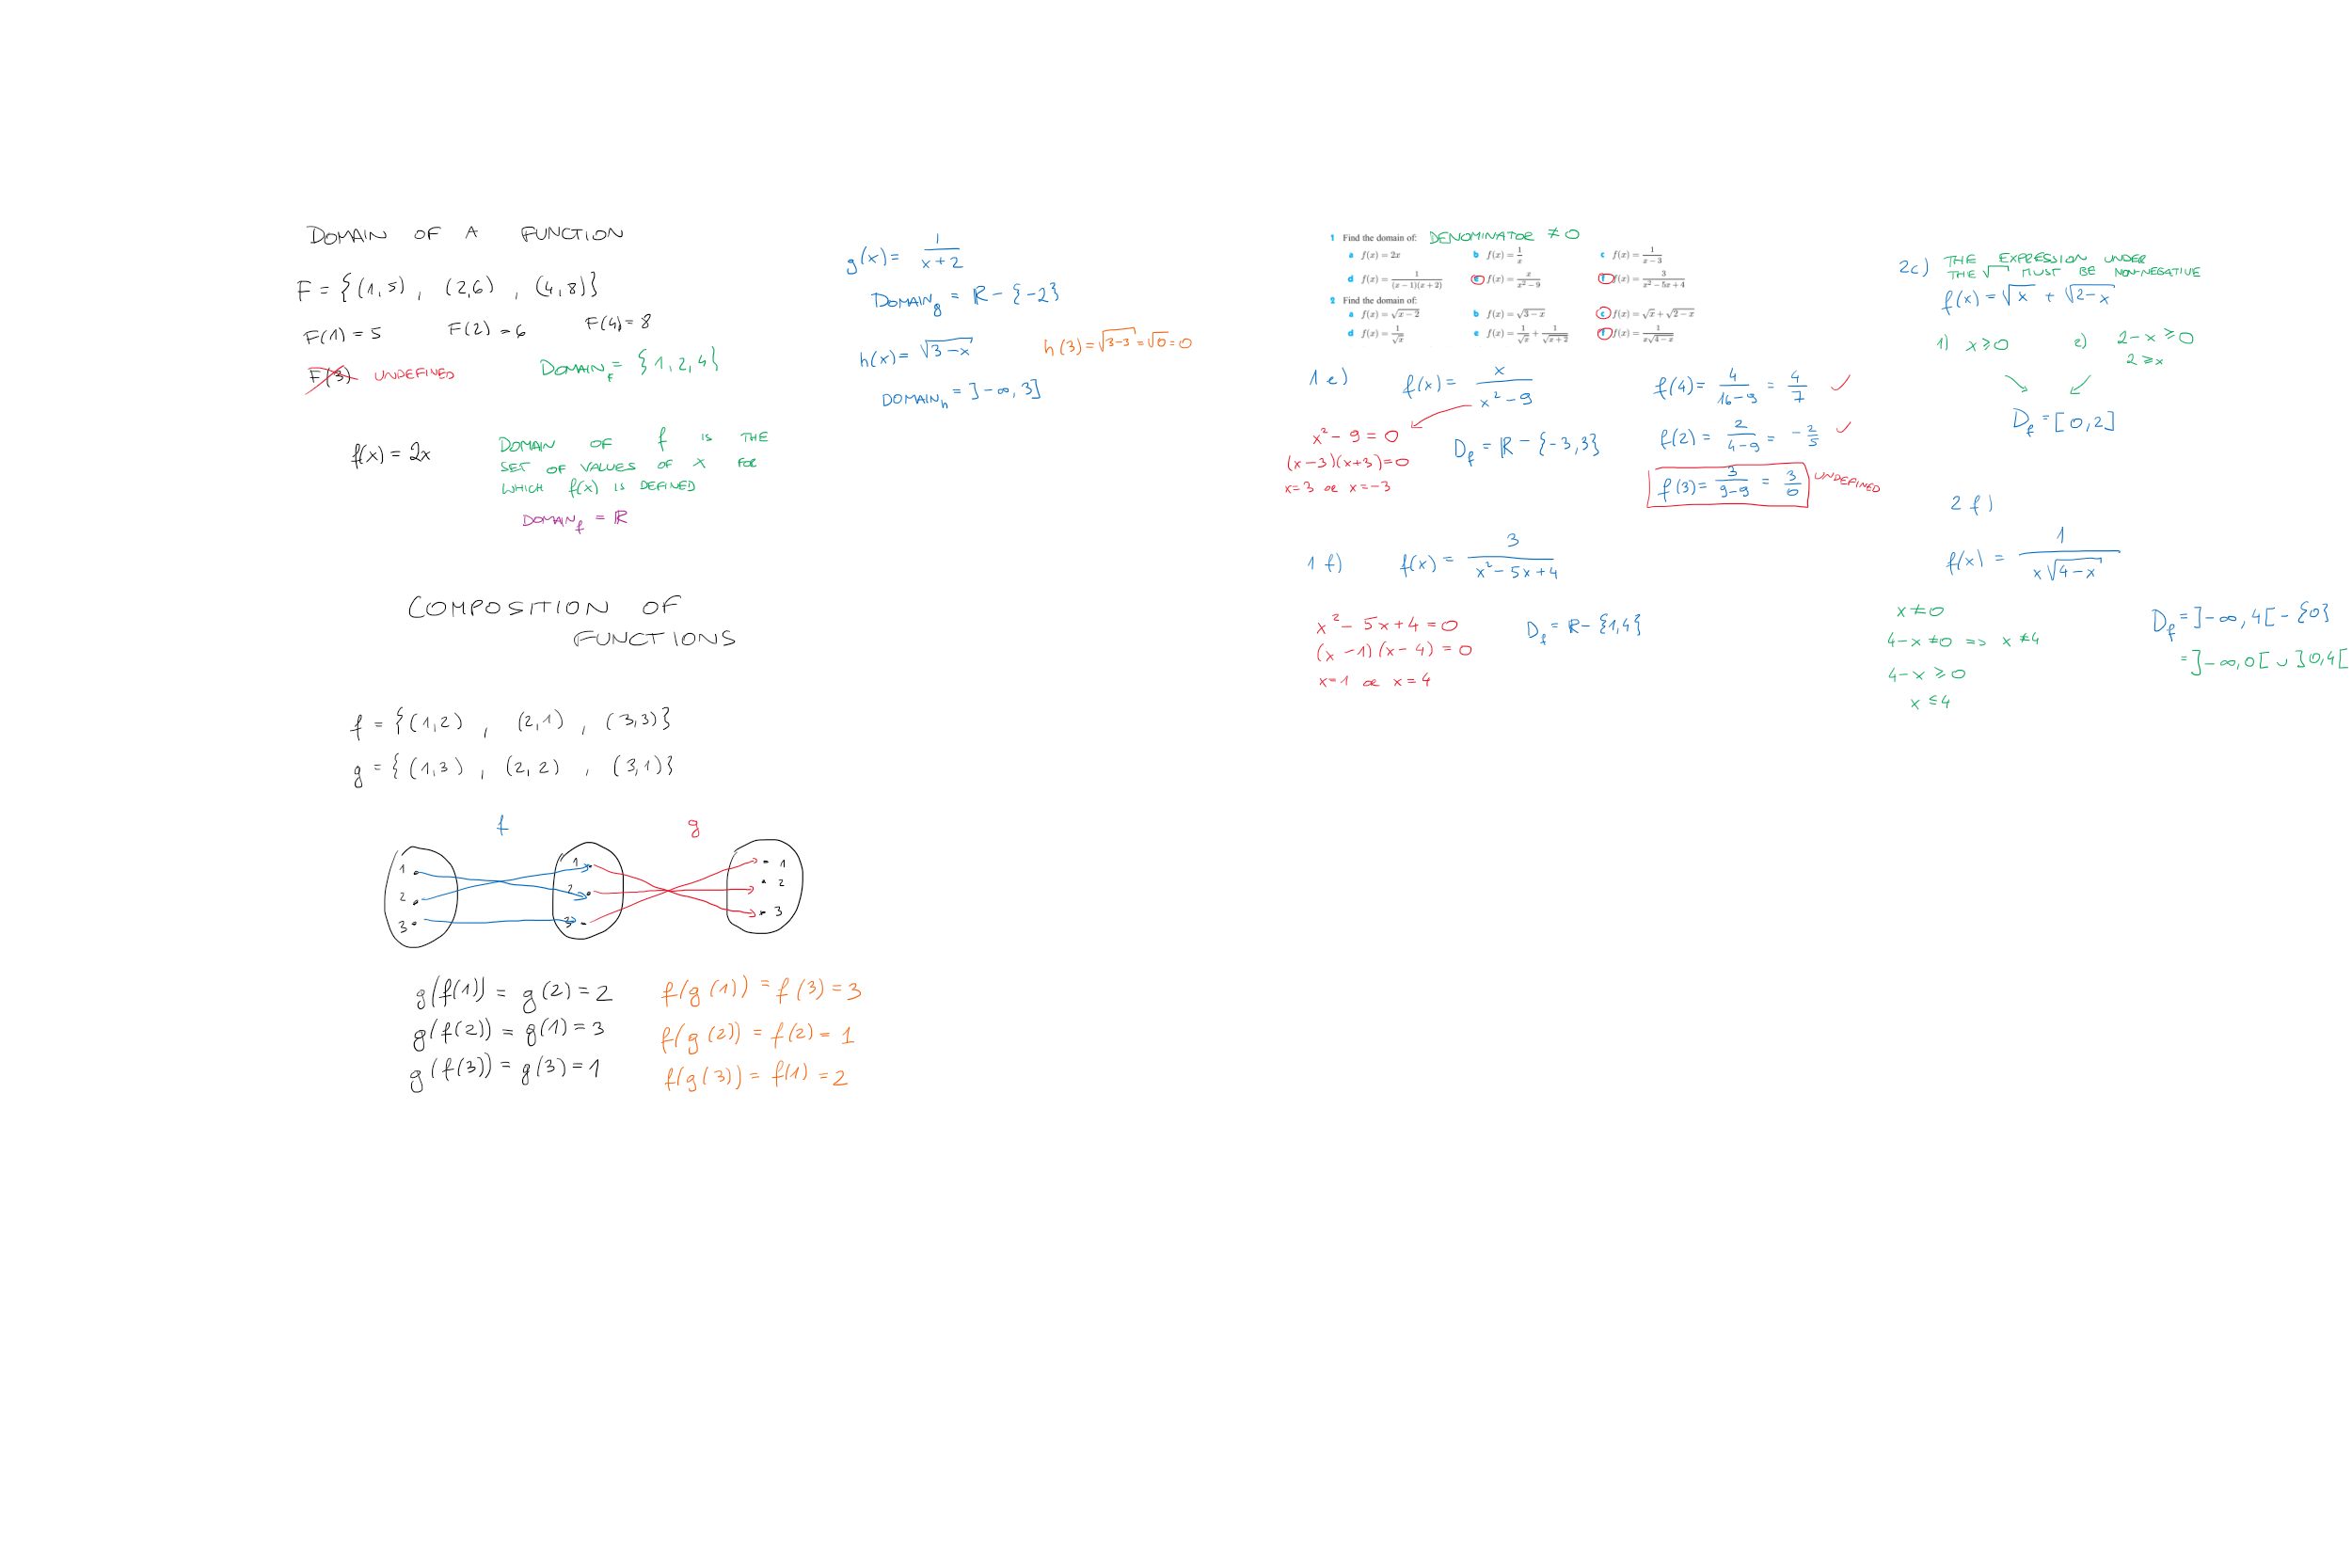 DOMAIN OF A FUNCTION
F = {(1,5) , (2,6) , (4,8)}
F(1) = 5 F(2) = 6 F(4) = 8
F(3) UNDEFINED DOMAIN_F = {1,2,4}
f(x) = 2x
DOMAIN OF f IS THE
SET OF VALUES OF X FOR
WHICH f(x) IS DEFINED
DOMAIN_f = ℝ
g(x) = 1/(x+2)
DOMAIN_g = ℝ - {-2}
h(x) = √(3-x) h(3) = √(3-3) = √0 = 0
DOMAIN_h = ]-∞, 3]
COMPOSITION OF
FUNCTIONS
f = {(1,2) , (2,1) , (3,3)}
g = {(1,3) , (2,2) , (3,1)}
f g
1 1 1
2 2 2
3 3 3
g(f(1)) = g(2) = 2 f(g(1)) = f(3) = 3
g(f(2)) = g(1) = 3 f(g(2)) = f(2) = 1
g(f(3)) = g(3) = 1 f(g(3)) = f(1) = 2
1 Find the domain of: DENOMINATOR ≠ 0
a f(x) = 2x b f(x) = 1/x c f(x) = 1/(x-3)
d f(x) = 1/((x-1)(x+2)) e f(x) = x/(x²-9) f f(x) = 3/(x²-5x+4)
2 Find the domain of:
a f(x) = √(x-2) b f(x) = √(3-x) c f(x) = √x + √(2-x)
d f(x) = 1/√x e f(x) = 1/√x + 1/√(x+2) f f(x) = 1/(x√(4-x))
1 e) f(x) = x/(x²-9)
x² - 9 = 0
(x-3)(x+3) = 0
x = 3 or x = -3
D_f = ℝ - {-3,3}
f(4) = 4/(16-9) = 4/7 ✓
f(2) = 2/(4-9) = -2/5 ✓
f(3) = 3/(9-9) = 3/0 UNDEFINED
1 f) f(x) = 3/(x²-5x+4)
x² - 5x + 4 = 0
(x-1)(x-4) = 0
x = 1 or x = 4
D_f = ℝ - {1,4}
2c) THE EXPRESSION UNDER
THE √ MUST BE NON-NEGATIVE
f(x) = √x + √(2-x)
1) x ≥ 0 2) 2-x ≥ 0
2 ≥ x
D_f = [0,2]
2 f)
f(x) = 1/(x√(4-x))
x ≠ 0
4-x ≠ 0 => x ≠ 4
4-x ≥ 0
x ≤ 4
D_f = ]-∞,4[ - {0}
= ]-∞,0[ ∪ ]0,4[